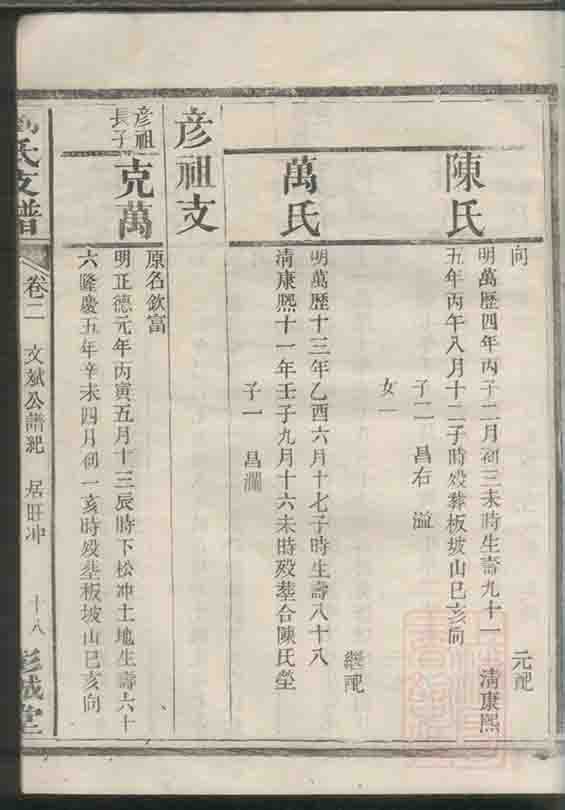 向
元配
陳氏
明萬歷四年丙子二月初三未時生壽九十一 清康熙
五年丙午八月十二子時歿葬板坡山巳亥向
子二 昌右 溢
女一
繼配
萬氏
明萬歷十三年乙酉六月十七子時生壽八十八
清康熙十一年壬子九月十六未時歿塟合陳氏塋
子一 昌瀾
彦祖支
彦祖
長子
克萬
原名欽富
明正德元年丙寅五月十三辰時下松冲土地生壽六十
六隆慶五年辛未四月初一亥時歿塟板坡山巳亥向
氏支譜
卷二
文斌公譜紀 居旺冲
十八
彭城堂